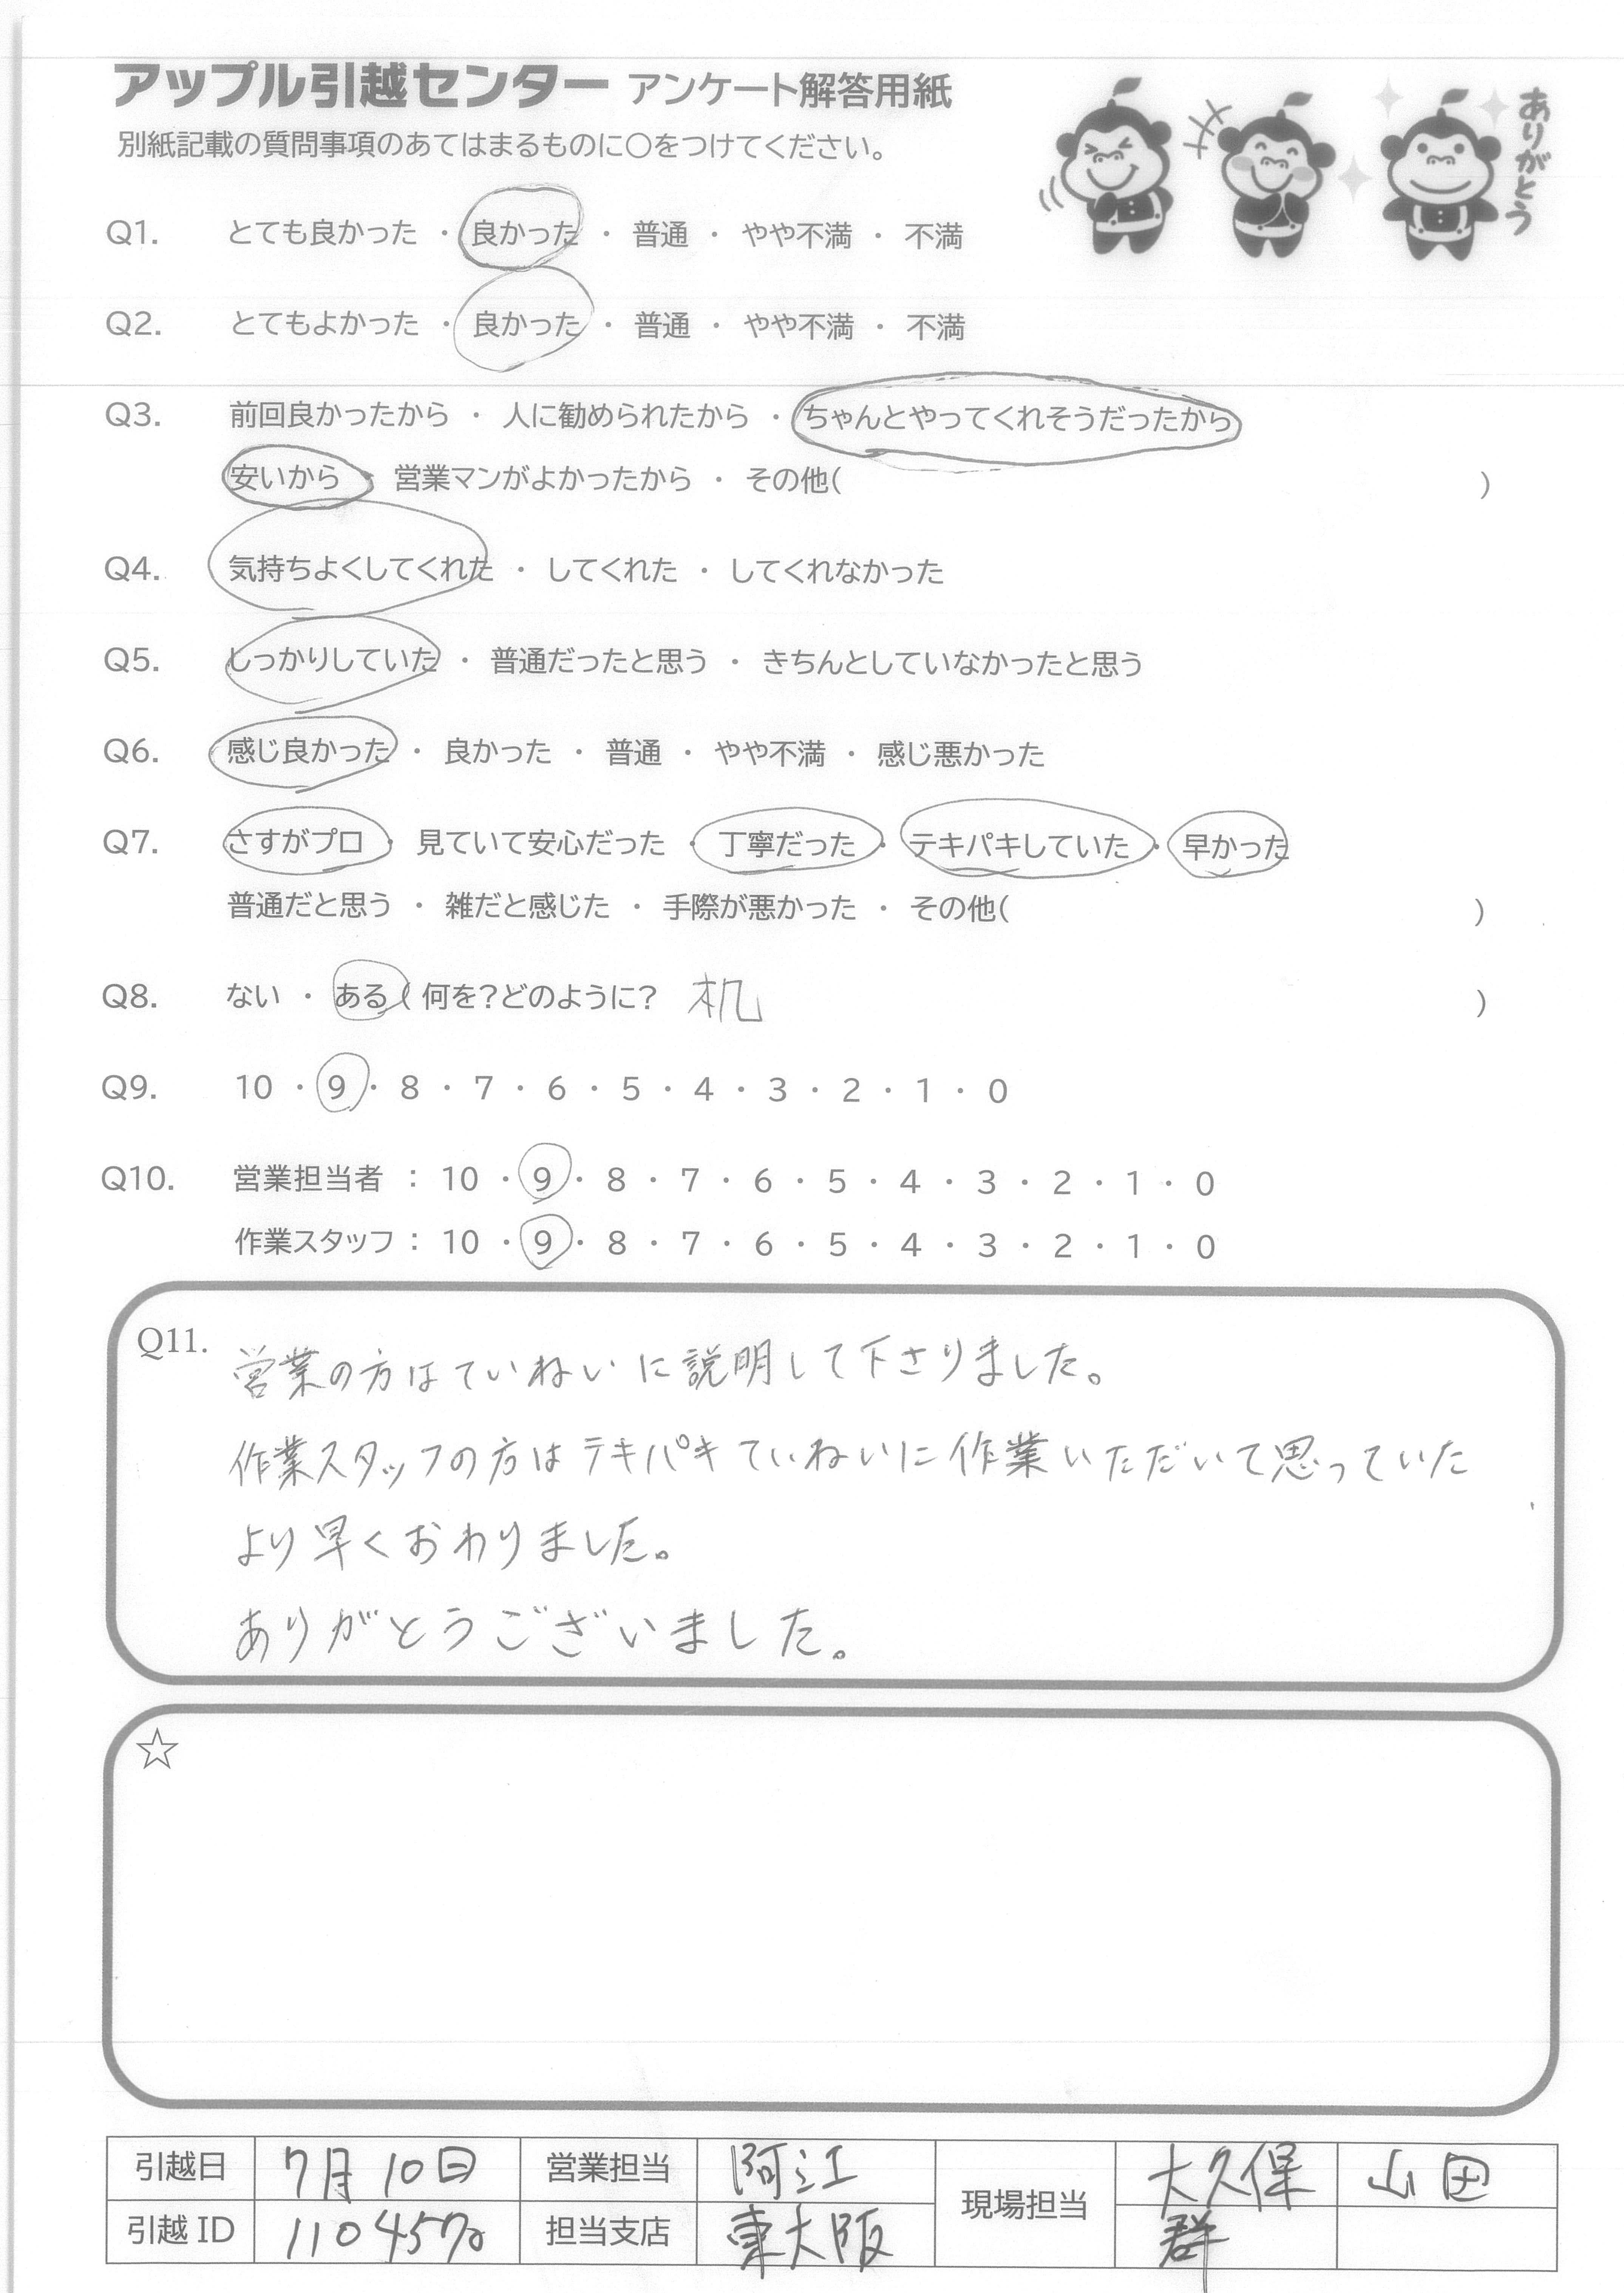 アップル引越センター アンケート解答用紙
別紙記載の質問事項のあてはまるものに○をつけてください。
ありがとう
Q1. とても良かった ・ 良かった ・ 普通 ・ やや不満 ・ 不満
Q2. とてもよかった ・ 良かった ・ 普通 ・ やや不満 ・ 不満
Q3. 前回良かったから ・ 人に勧められたから ・ ちゃんとやってくれそうだったから
安いから ・ 営業マンがよかったから ・ その他( )
Q4. 気持ちよくしてくれた ・ してくれた ・ してくれなかった
Q5. しっかりしていた ・ 普通だったと思う ・ きちんとしていなかったと思う
Q6. 感じ良かった ・ 良かった ・ 普通 ・ やや不満 ・ 感じ悪かった
Q7. さすがプロ ・ 見ていて安心だった ・ 丁寧だった ・ テキパキしていた ・ 早かった
普通だと思う ・ 雑だと感じた ・ 手際が悪かった ・ その他( )
Q8. ない ・ ある ( 何を?どのように? 机 )
Q9. 10 ・ 9 ・ 8 ・ 7 ・ 6 ・ 5 ・ 4 ・ 3 ・ 2 ・ 1 ・ 0
Q10. 営業担当者 : 10 ・ 9 ・ 8 ・ 7 ・ 6 ・ 5 ・ 4 ・ 3 ・ 2 ・ 1 ・ 0
作業スタッフ : 10 ・ 9 ・ 8 ・ 7 ・ 6 ・ 5 ・ 4 ・ 3 ・ 2 ・ 1 ・ 0
Q11. 営業の方はていねいに説明して下さりました。
作業スタッフの方はテキパキていねいに作業いただいて思っていた
より早くおわりました。
ありがとうございました。
☆
引越日 7月10日 営業担当 阿江 現場担当 大久保 山田
引越ID 担当支店 東大阪 群